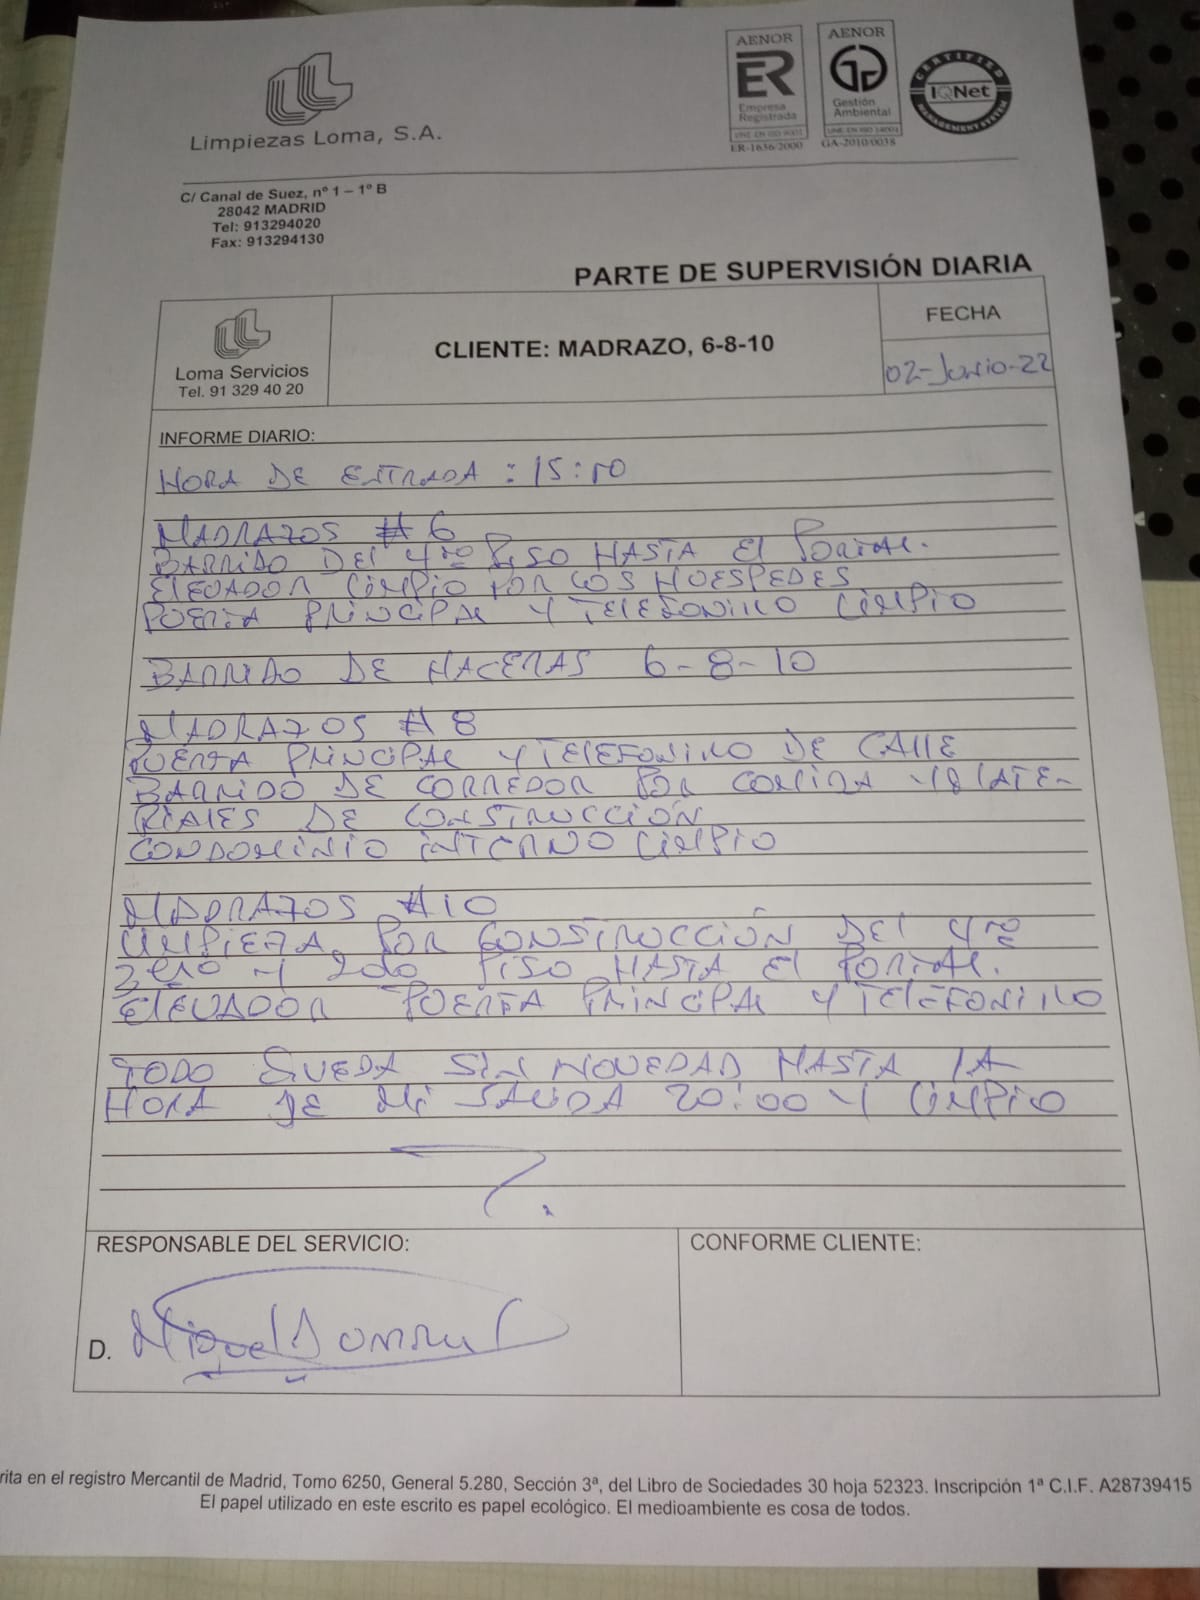 Limpiezas Loma, S.A.
AENOR
ER
Empresa
Registrada
UNE EN ISO 9001
ER-1636/2000
AENOR
Gestión
Ambiental
UNE EN ISO 14001
GA-2010/0038
CERTIFIED
IQNet
MANAGEMENT SYSTEM
C/ Canal de Suez, nº 1 – 1º B
28042 MADRID
Tel: 913294020
Fax: 913294130
PARTE DE SUPERVISIÓN DIARIA
Loma Servicios
Tel. 91 329 40 20
CLIENTE: MADRAZO, 6-8-10
FECHA
02-Junio-22
INFORME DIARIO:
HORA DE ENTRADA : 15:10
MADRAZOS # 6
BARRIDO DEL 4to PISO HASTA El PORTAL.
ELEVADOR LIMPIO POR LOS HUESPEDES
PUERTA PRINCIPAL Y TELEFONILLO LIMPIO
BARRIDO DE HACERAS 6-8-10
MADRAZOS # 8
PUERTA PRINCIPAL Y TELEFONILLO DE CALLE
BARRIDO DE CORREDOR POR MATE-
RIALES DE CONSTRUCCIÓN
CONDOMINIO INTERNO LIMPIO
MADRAZOS #10
LIMPIEZA POR CONSTRUCCIÓN DEL 4to
3ero Y 2do PISO HASTA El PORTAL.
ELEVADOR PUERTA PRINCIPAL Y TELEFONILLO
TODO QUEDA SIN NOVEDAD HASTA LA
HORA DE MI SALIDA 20:00 Y LIMPIO
RESPONSABLE DEL SERVICIO:
CONFORME CLIENTE:
D. Miguel
rita en el registro Mercantil de Madrid, Tomo 6250, General 5.280, Sección 3ª, del Libro de Sociedades 30 hoja 52323. Inscripción 1ª C.I.F. A28739415
El papel utilizado en este escrito es papel ecológico. El medioambiente es cosa de todos.